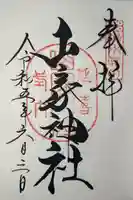 奉拝
山家神社
令和五年六月三日